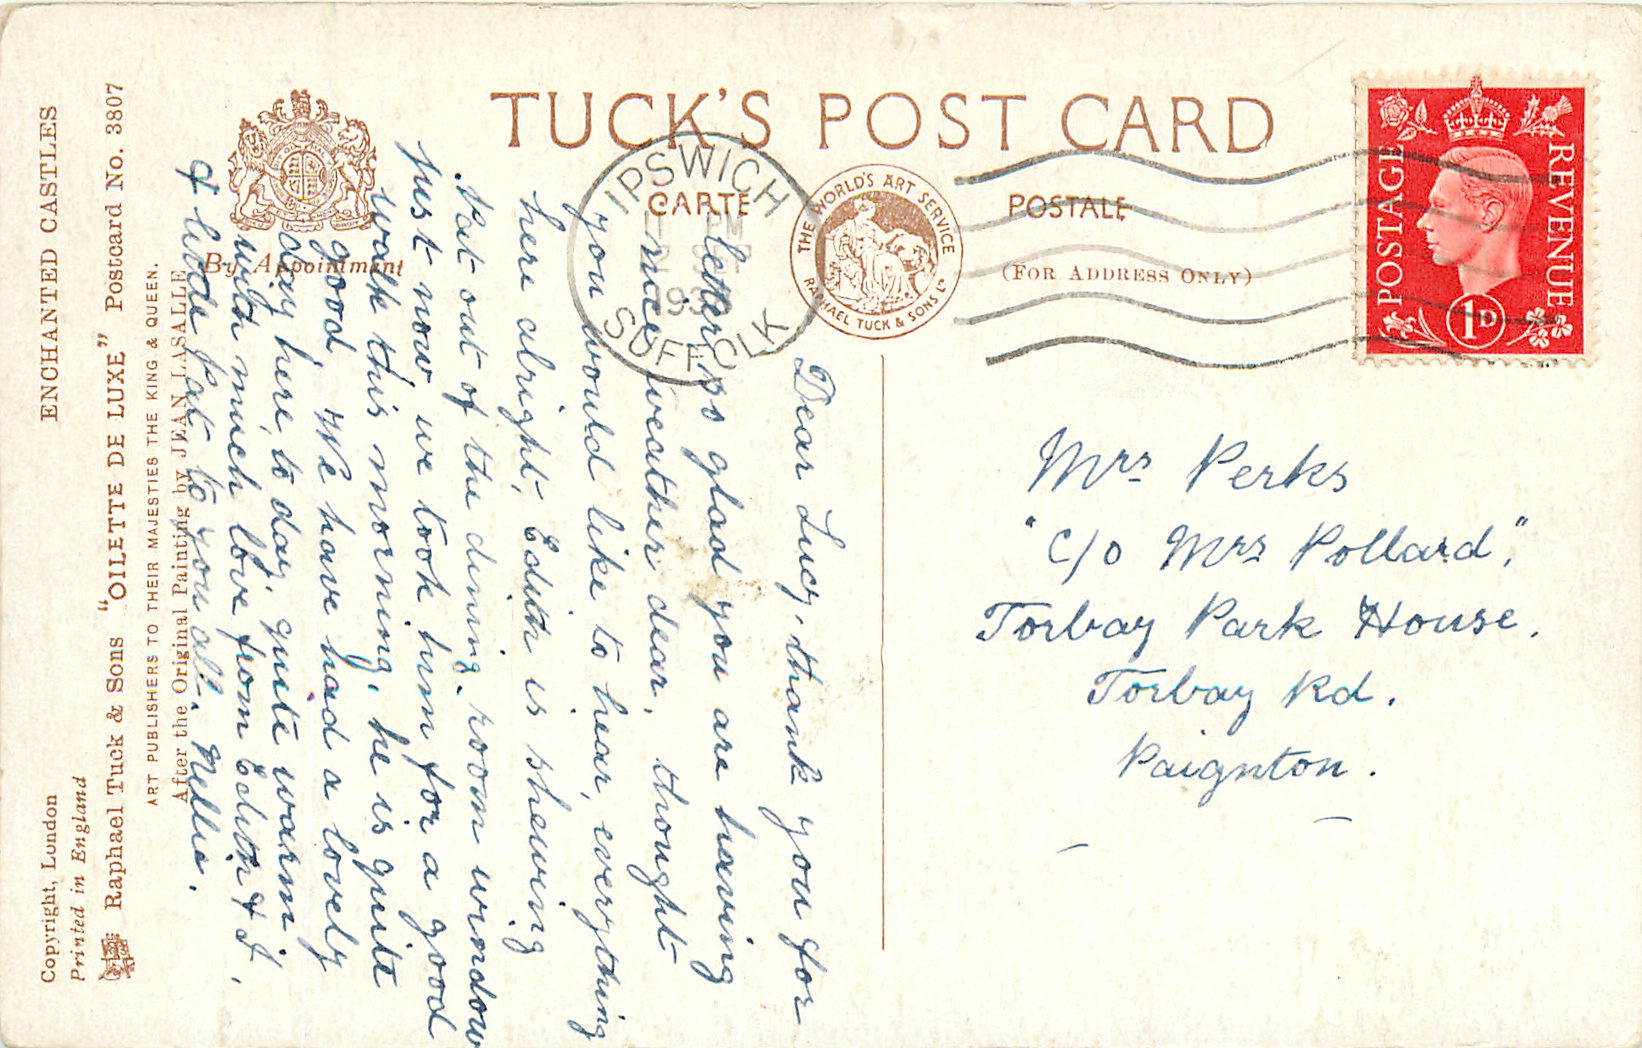 TUCK'S POST CARD
CARTE POSTALE
(FOR ADDRESS ONLY)
THE WORLD'S ART SERVICE
RAPHAEL TUCK & SONS LD
IPSWICH
193
SUFFOLK
POSTAGE
REVENUE
1D
By Appointment
ENCHANTED CASTLES
Copyright, London
Printed in England
Raphael Tuck & Sons "OILETTE DE LUXE" Postcard No. 3807
ART PUBLISHERS TO THEIR MAJESTIES THE KING & QUEEN.
After the Original Painting by JEAN LASALLE
Dear Lucy, thank you for
letter, so glad you are having
nice weather dear, thought
you would like to hear, everything
here alright, Edith is shewing
Pat out of the dining room window
just now we took him for a good
walk this morning, he is quite
good, We have had a lovely
day here, to day, quite warm
with much love from Edith & I,
& little Pat to you all. Nellie.
Mrs Perks
"C/o Mrs Pollard",
Torbay Park House.
Torbay Rd.
Paignton.